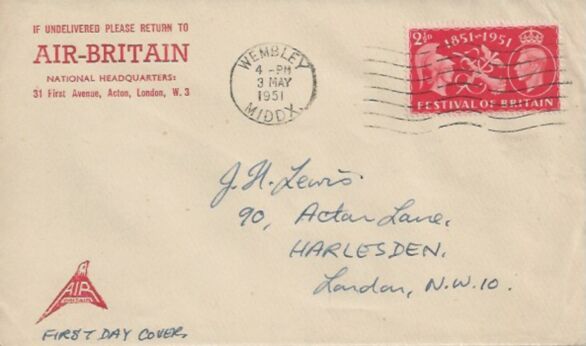 IF UNDELIVERED PLEASE RETURN TO
AIR-BRITAIN
NATIONAL HEADQUARTERS:
31 First Avenue, Acton, London, W.3
WEMBLEY
4 - PM
3 MAY
1951
MIDDX.
2½D
1851-1951
FESTIVAL OF BRITAIN
J. H. Lewis
90, Acton Lane,
HARLESDEN.
London, N.W.10.
AIR
BRITAIN
FIRST DAY COVER